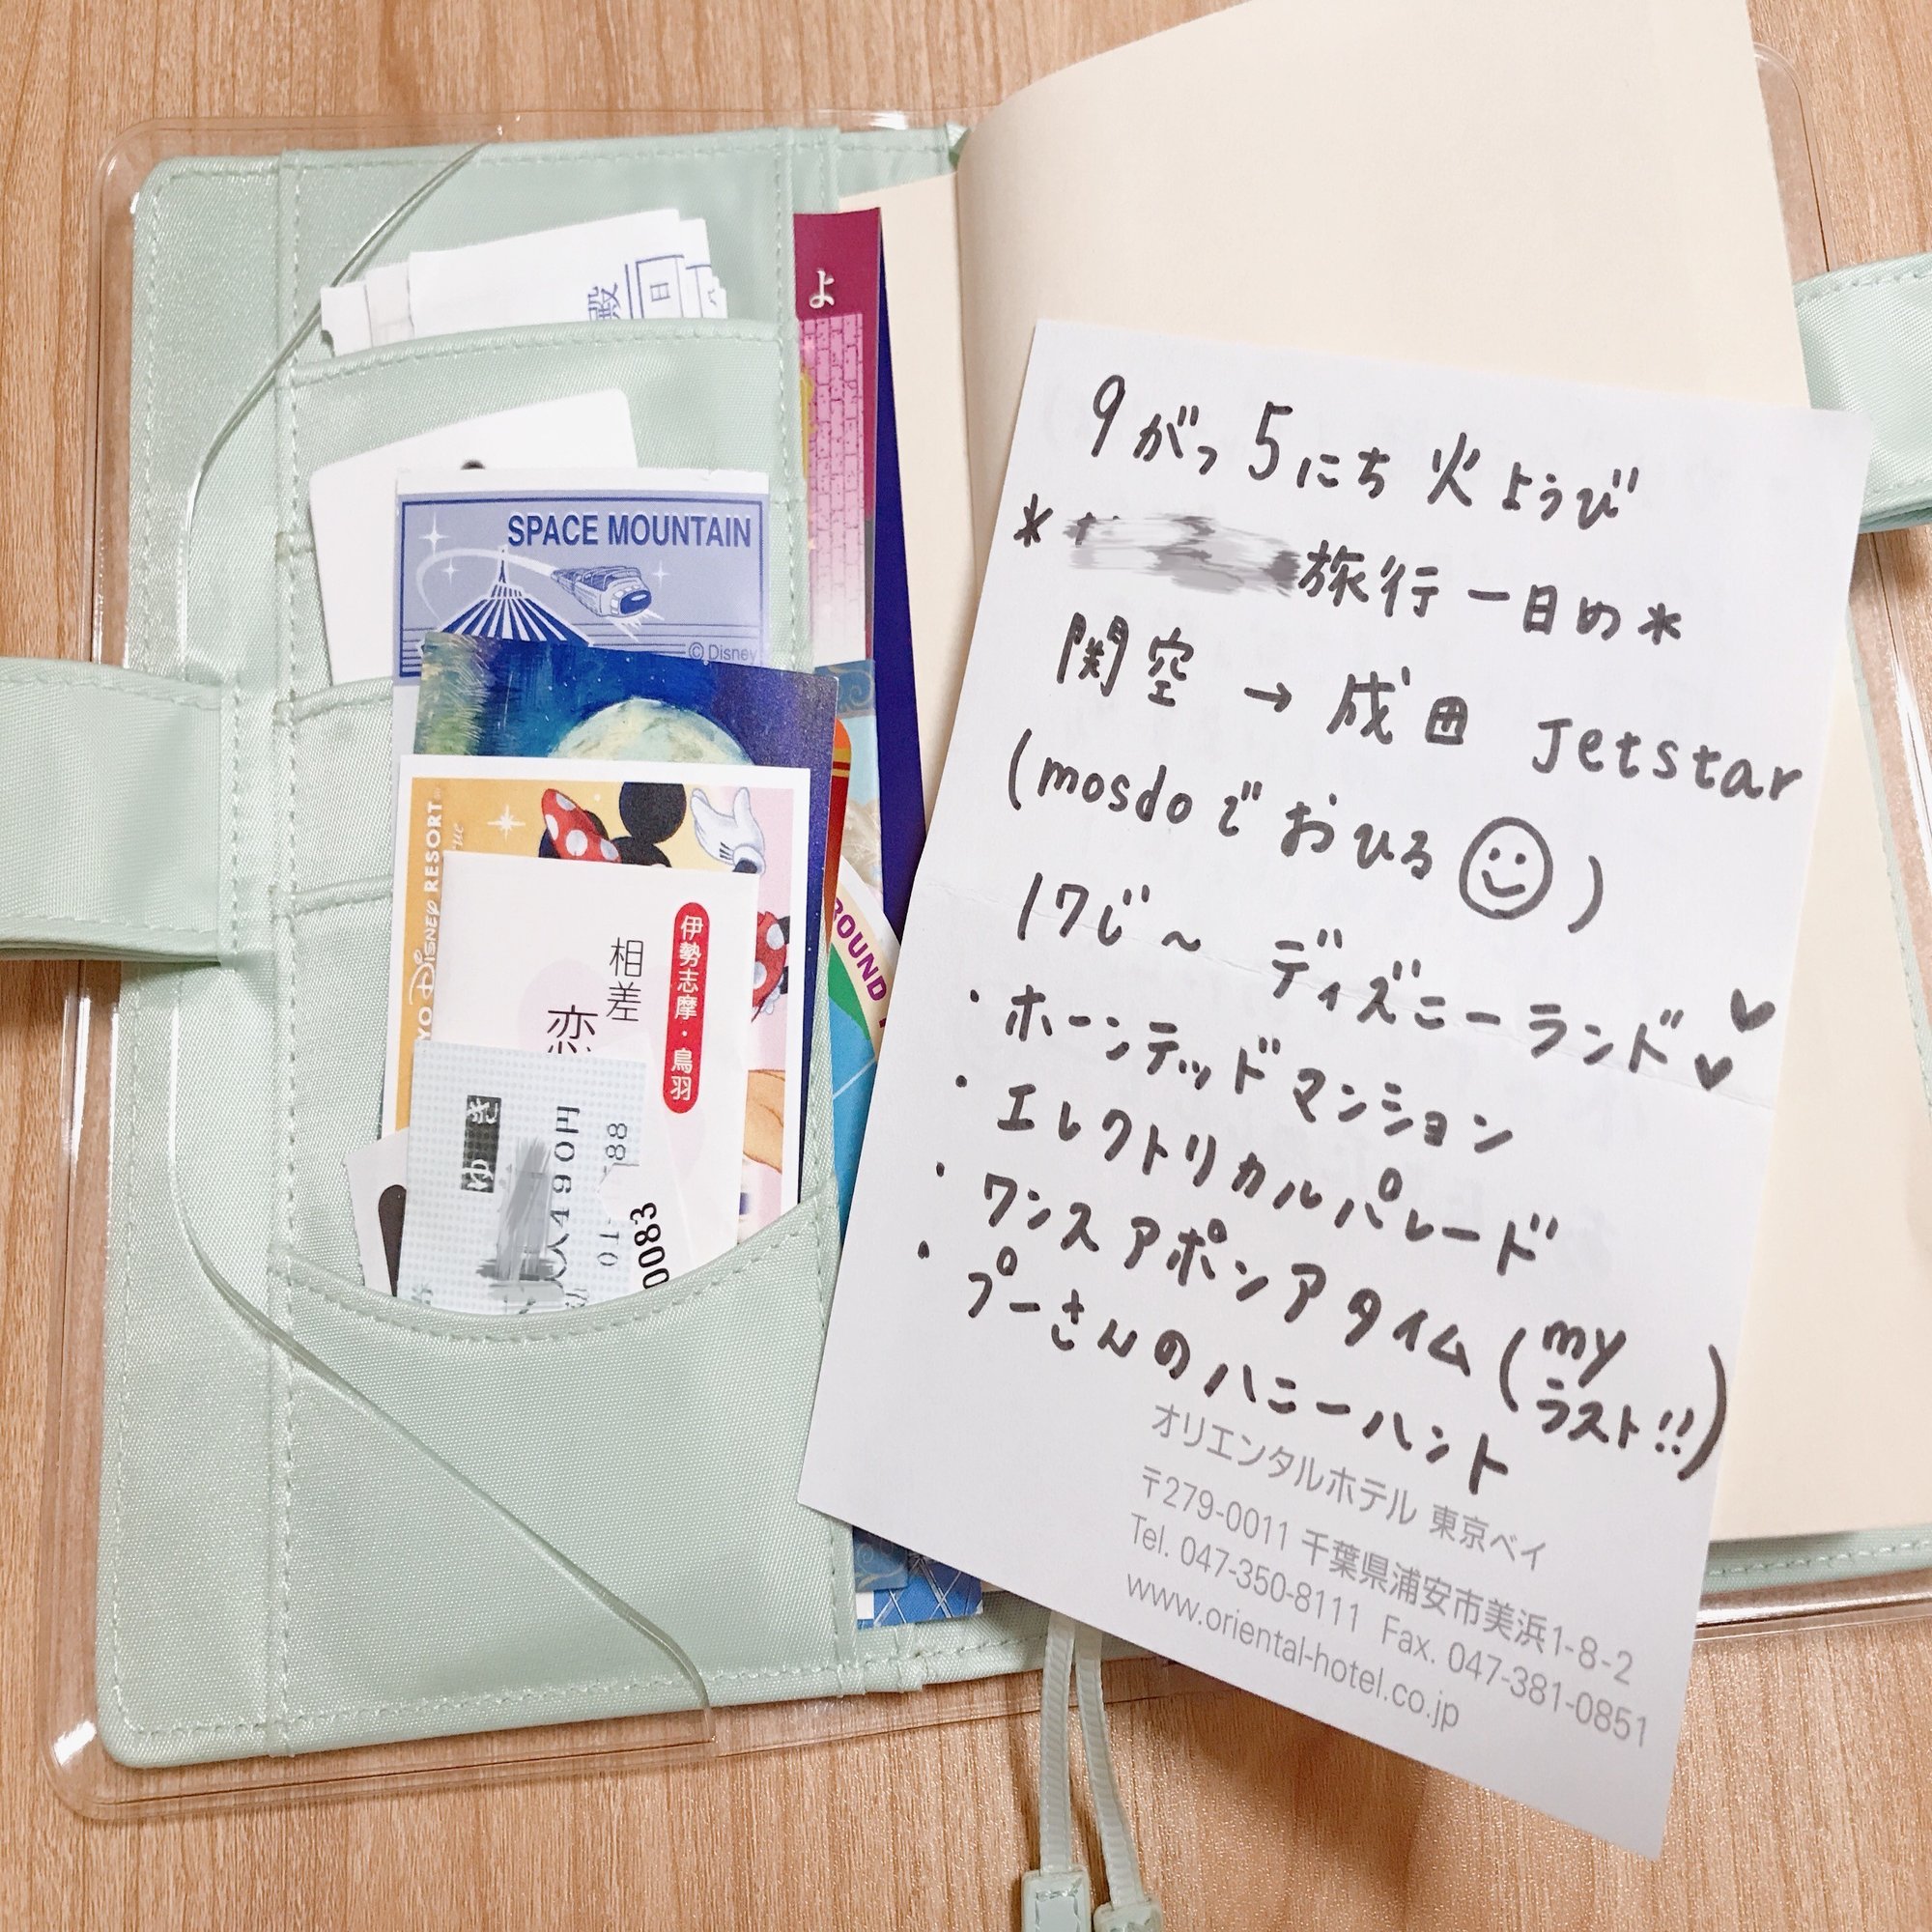 日
よ
SPACE MOUNTAIN
© Disney
DISNEY RESORT
伊勢志摩・鳥羽
相差
恋
ゆき
490円
0083
ROUND
9がつ5にち 火ようび
* 旅行 一日め *
関空 → 成田 Jetstar
(mosdoでおひる )
17じ〜 ディズニーランド
・ホーンテッドマンション
・エレクトリカルパレード
・ワンスアポンアタイム (my ラスト!!)
・プーさんのハニーハント
オリエンタルホテル 東京ベイ
〒279-0011 千葉県浦安市美浜1-8-2
Tel. 047-350-8111 Fax. 047-381-0851
www.oriental-hotel.co.jp